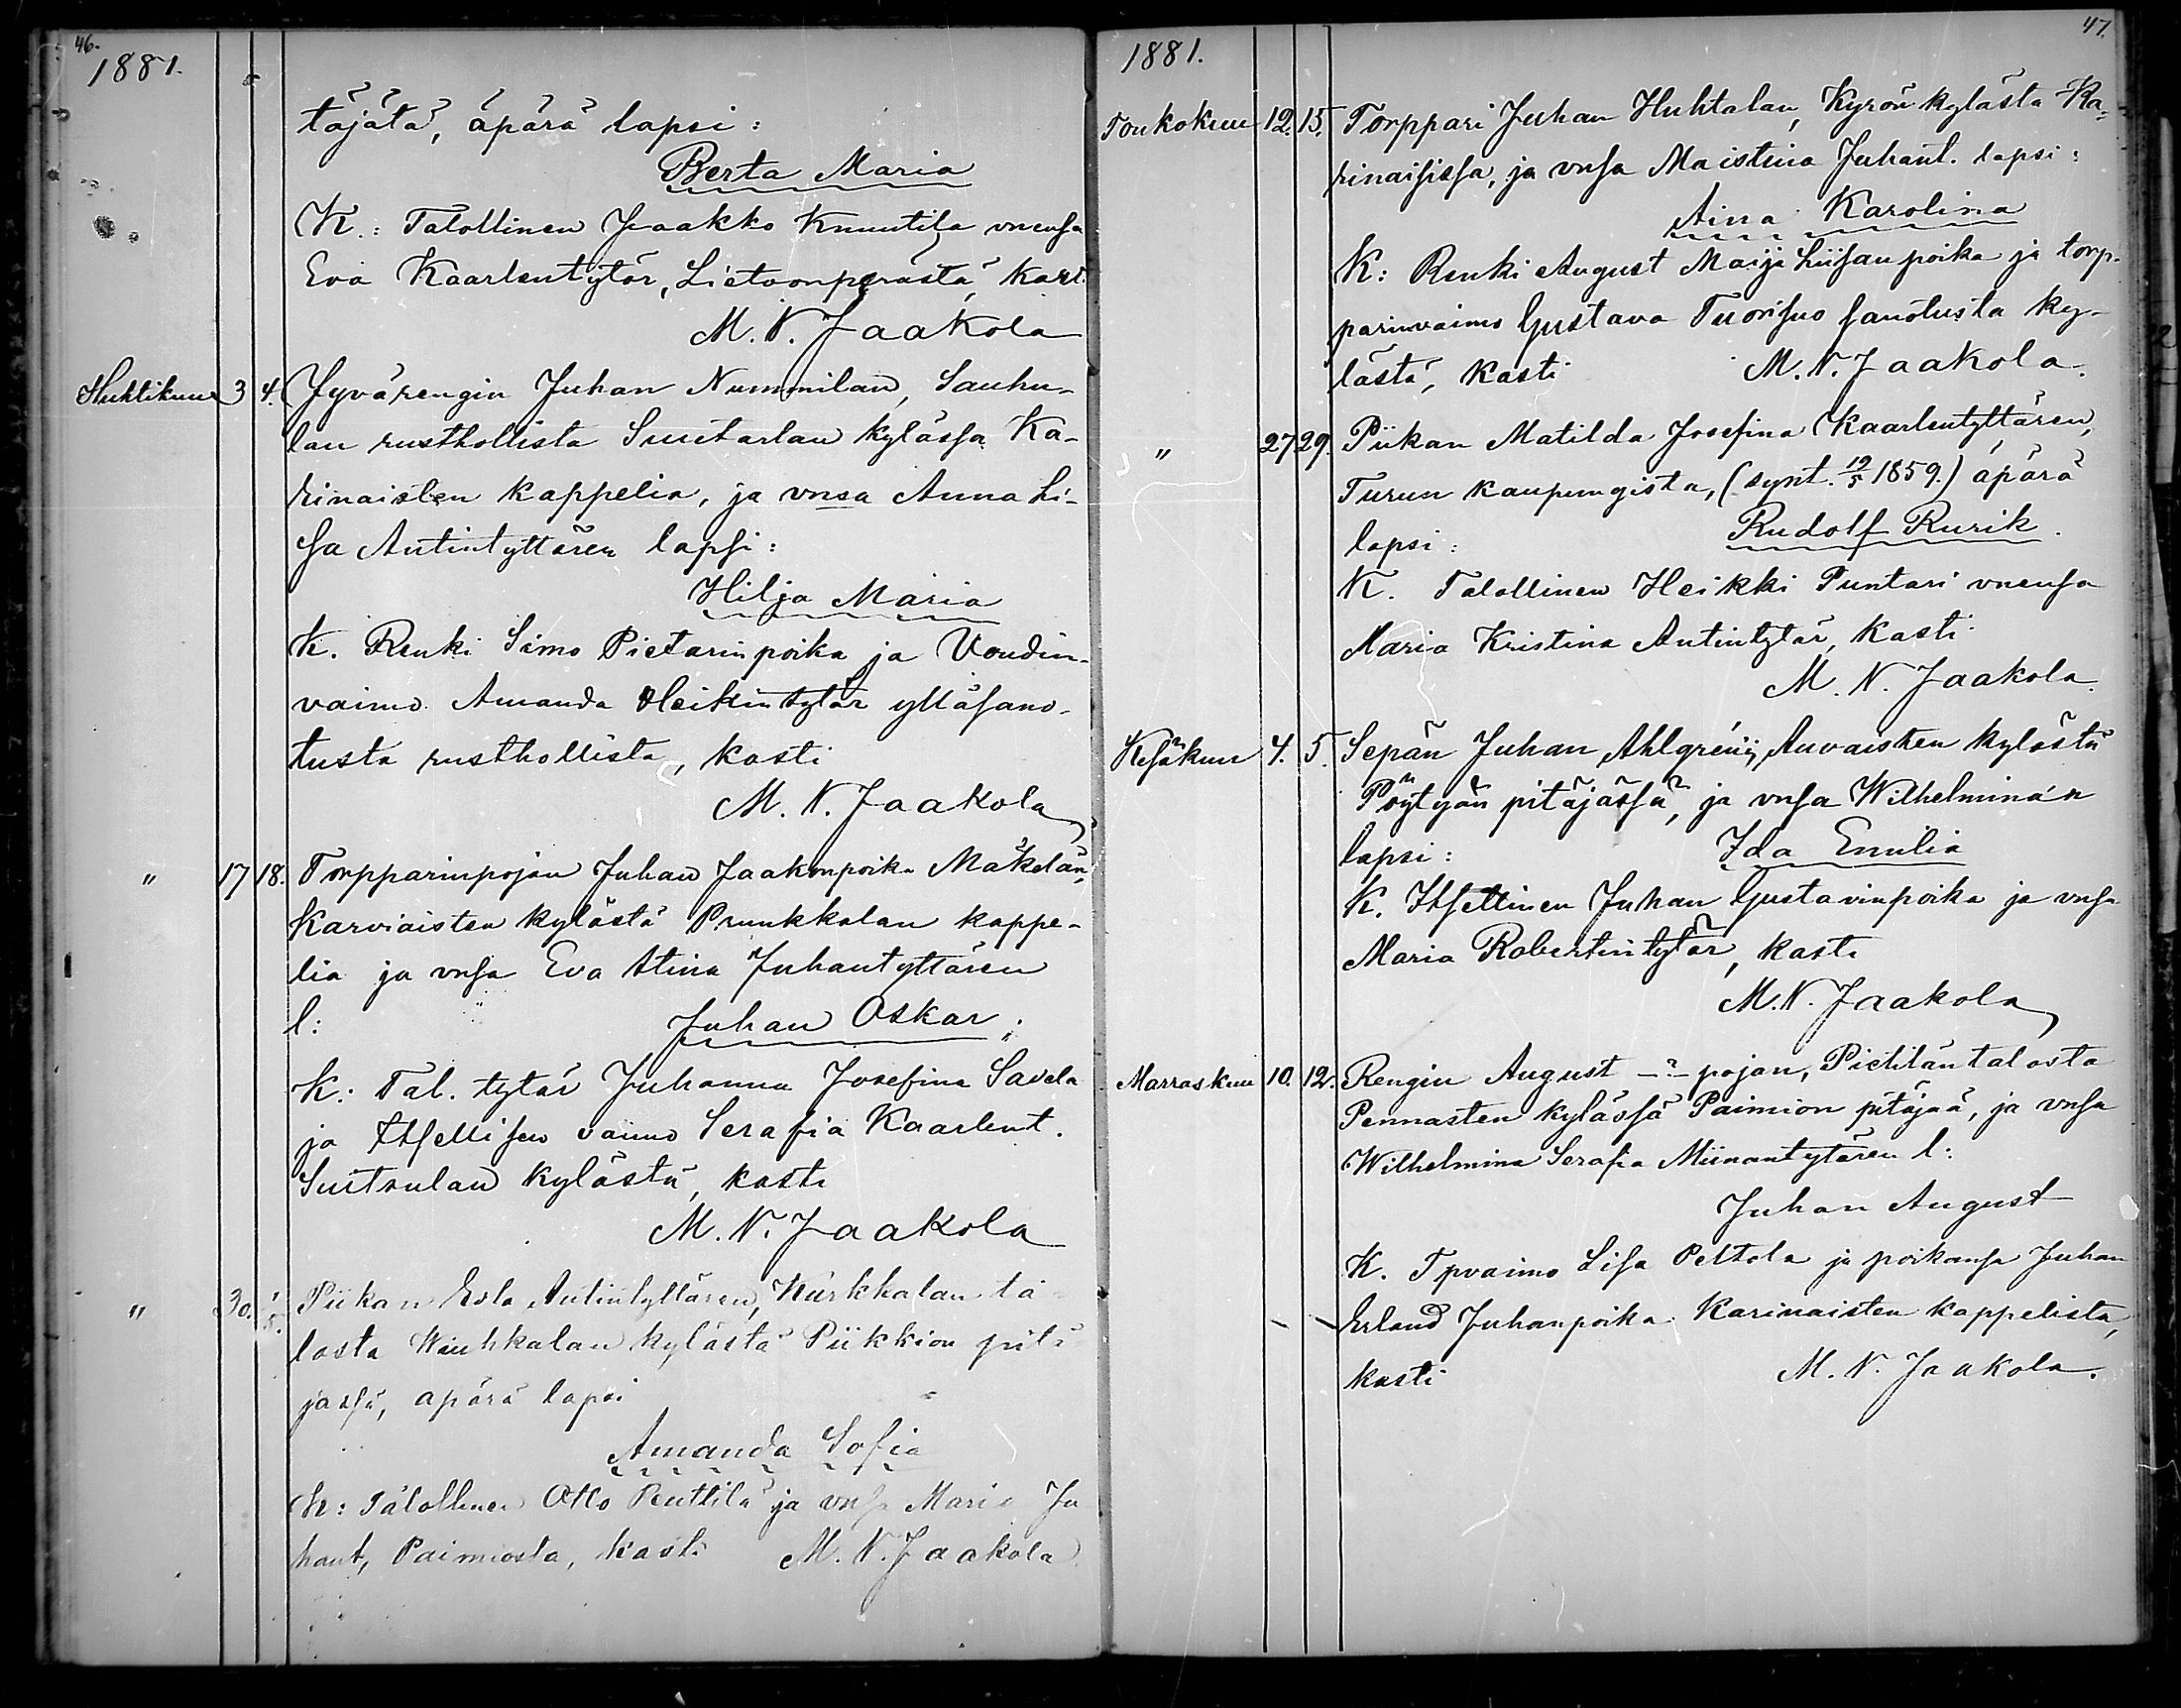 46.
1881.
täjätä, äpärä lapsi:
Berta Maria
K.: Talollinen Jaakko Knuutila vnensa
Eva Kaarlentytär, Lietoonperästä, kast.
M. N. Jaakola
Huhtikuu 3 4. Jyvärengin Juhan Nummilan, Sauhu-
lan rusthollista Suitarlan kylässa Ka-
rinaisten kappelia, ja vnsa Anna Li-
sa Antintyttären lapsi:
Hilja Maria
K. Renki Simo Pietarinpoika ja Voudin-
vaimo Amanda Heikintytär ylläsano-
tusta rusthollista, kasti
M. N. Jaakola
" 17 18. Torpparinpojan Juhan Jaakonpoika Mäkelän,
Karviaisten kylästä Prunkkalan kappe-
lia ja vnsa Eva Stina Juhantyttären
l: Juhan Oskar;
K: Tal. tytär Juhanna Josefina Savela
ja Itsellisen vaimo Serafia Kaarlent.
Suitsulan kylästä, kasti
M. N. Jaakola
" 30. 1/5. Piikan Eva Antintyttären, Kurkkalan ta-
losta Wiuhkalan kylästä Piikkion pitä-
jässä, äpärä lapsi
Amanda Sofia
K: Talollinen Otto Penttilä ja vnsa Maria Ju
hant, Paimiosta, kasti M. N. Jaakola
47.
1881.
Toukokuu 12. 15. Torppari Juhan Huhtalan, Kyrön kylästa Ka-
rinaisissa, ja vnsa Maistina Juhant. lapsi:
Aina Karolina
K: Renki August Maija Liisanpoika ja torp-
parinvaimo Gustava Tuorisuo sanotusta ky-
lästä, kasti M. N. Jaakola.
" 27 29. Piikan Matilda Josefina Kaarlentyttären,
Turun kaupungista, (synt. 19/5 1859.) äpärä
lapsi: Rudolf Rurik.
K. Talollinen Heikki Puntari vnensa
Maria Kristina Antintytär, kasti
M. N. Jaakola.
Kesäkuu 4. 5. Sepän Juhan Ahlgrénin, Auvaisten kylästä
Pöytyän pitäjässä, ja vnsa Wilhelminan
lapsi: Ida Emilia
K. Itsellinen Juhan Gustavinpoika ja vnsa
Maria Robertintytär, kasti
M. N. Jaakola
Marraskuu 10. 12. Rengin August -"- pojan, Pietilän talosta
Pennasten kylässä Paimion pitäjää, ja vnsa
Wilhelmina Serafia Miinantytären l:
Juhan August
K. Tpvaimo Lisa Peltola ja poikansa Juhan
Erland Juhanpoika Karinaisten kappelista,
kasti M. N. Jaakola.